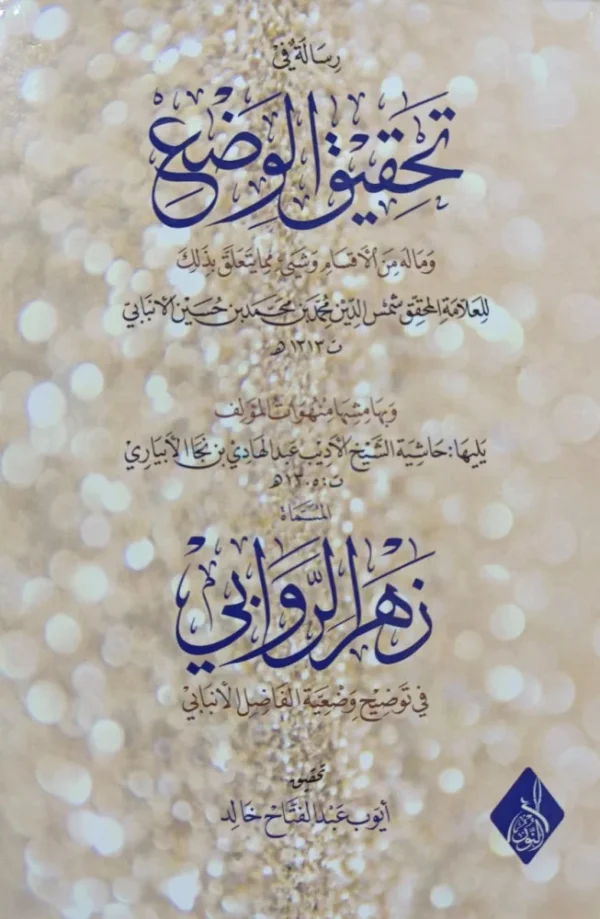 رِسَالَةٌ فِي
تَحْقِيقِ الْوَضْعِ
وَمَا لَهُ مِنَ الْأَقْسَامِ وَشَيْءٍ مِمَّا يَتَعَلَّقُ بِذَلِكَ
لِلعَلَّامَةِ المُحَقِّقِ شَمْسِ الدِّيْنِ مُحَمَّدِ بنِ مُحَمَّدِ بن حُسَيْن الأنبَابيّ
ت ١٣١٣ هـ
وَبِهَامِشِهَا مِنْهُوَاتُ المُؤَلِّف
يَليهَا: حَاشِيَة الشَّيْخ الأَدِيْبِ عَبد الهَادِي بن نَجَا الأَبيَاري
ت: ١٣٠٥ هـ
المُسَمَّاة
زَهْرُ الرَّوَابِي
فِي تَوضِيْحِ وَضْعِيَّةِ الفَاضِلِ الأَنبَابيّ
تحقيق
أيوب عَبْد الفَتَّاح خَالِد
النور